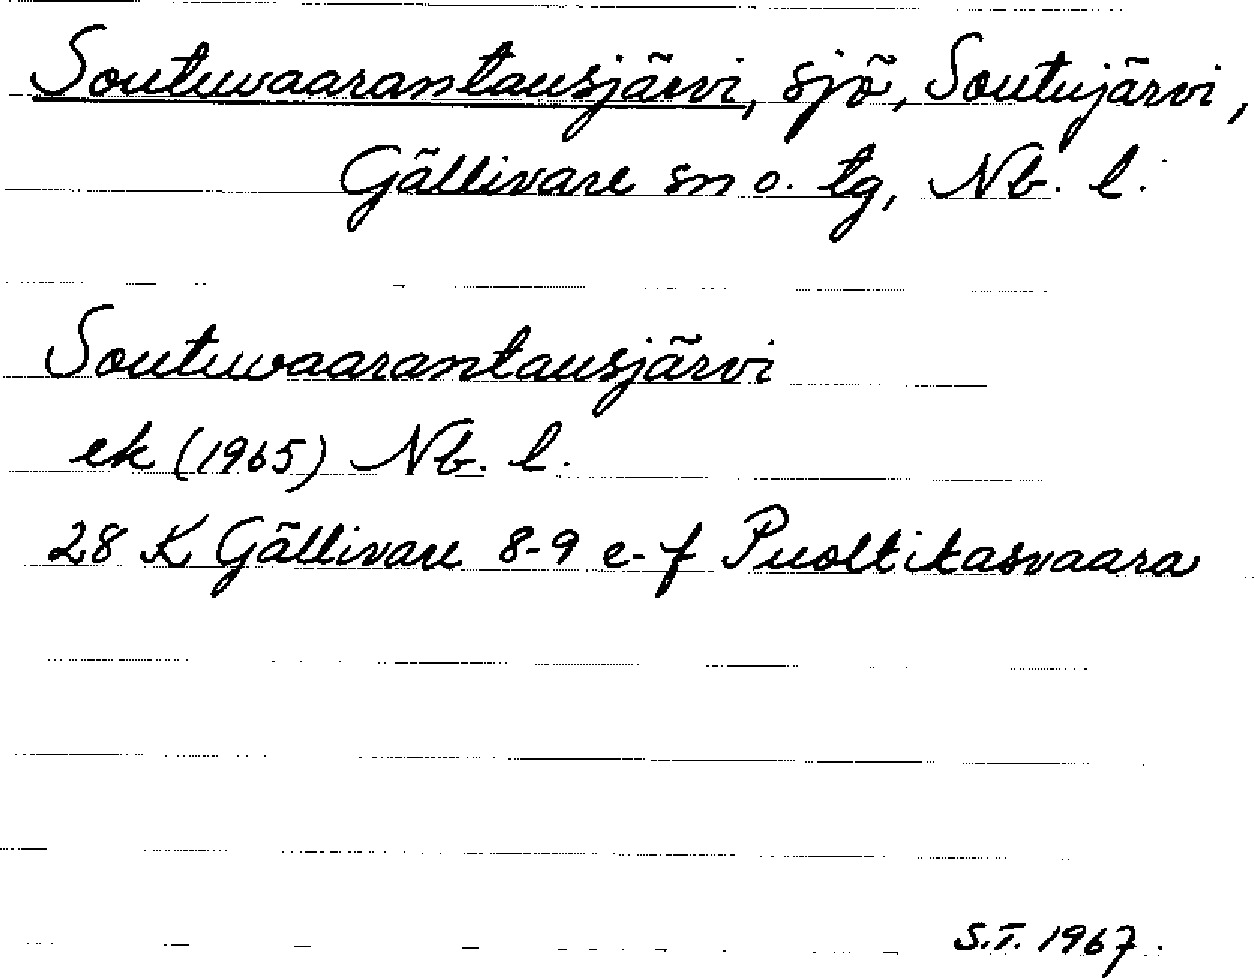 Soutuvaarantausjärvi, sjö, Soutujärvi,
Gällivare sn o. tg, Nb. l.
Soutuvaarantausjärvi
ek (1965) Nb. l.
28 K Gällivare 8-9 e-f Puoltikasvaara
S.T. 1967.